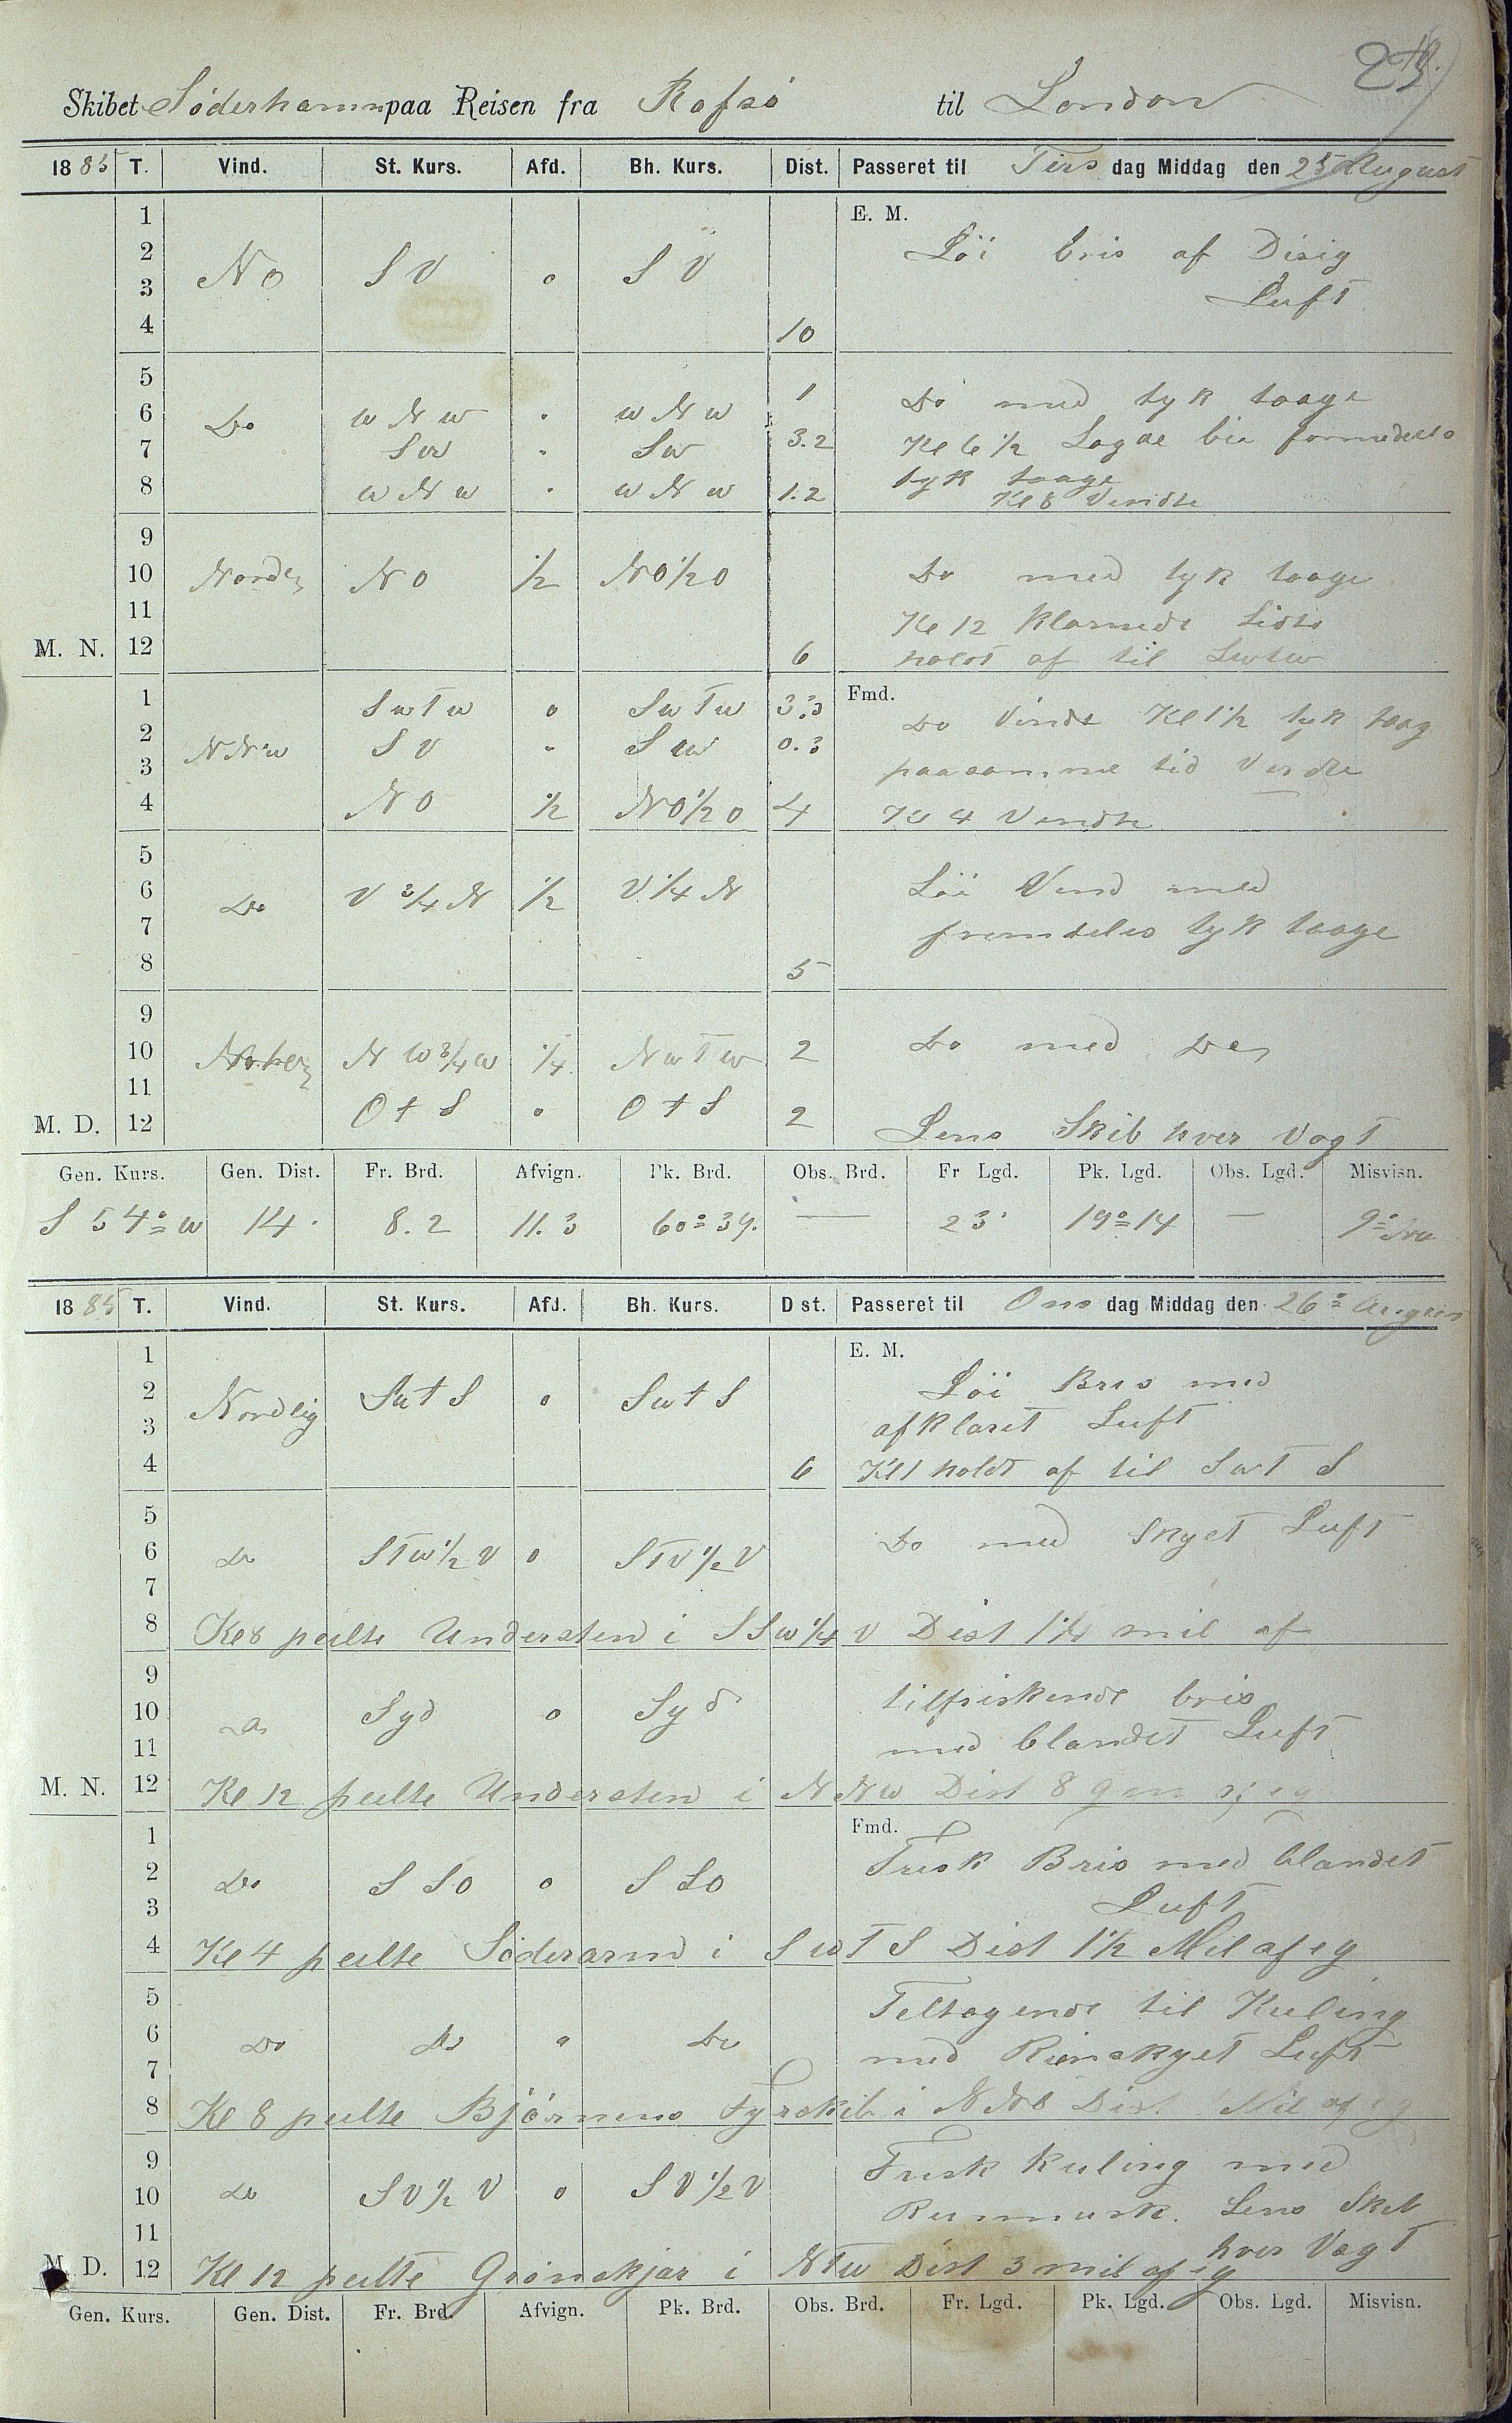 Skibet Söderhamn paa Reisen fra Rafsö til London
1885 T. Vind. St. Kurs. Afd. Bh. Kurs. Dist. Passeret til Tirs dag Middag den 25 August
1 E. M.
2 No S V o S V Löi bris af Disig
3 Luft
4 10
5 1
6 Do w N w " w N w Do med tyk taage
7 Sw " Sw 3.2 Kl 6 1/2 Lagde bie formedels
8 w N w " w N w 1.2 tyk taage
Kl 8 Vendte
9
10 Norden N O 1/2 NO 1/2 O Do med tyk taage
11 Kl 12 Klarnede
M. N. 12 6 holdt af til SwTw
1 SwTw o SwTw 3.3 Fmd. Do Vinde Kl 1 1/2 tyk taag
2 NNw S V " S w 0.3
3 paasamme tid Vendte
4 N O 1/2 NO 1/2 O 4 Kl 4 Vendte
5
6 Do V 3/4 N 1/2 V 1/4 N Löi Vind med
7 fremdeles tyk taage
8 5
9
10 N W 3/4 w 1/4 NwTw 2 Do med Do
11
M. D. 12 O t S o O t S 2 Lens Skib hver Vagt
Gen. Kurs. Gen. Dist. Fr. Brd. Afvign. Pk. Brd. Obs. Brd. Fr Lgd. Pk. Lgd. Obs. Lgd. Misvisn.
S 54° w 14. 8.2 11.3 60° 39. — 23' 19° 14 — 9° Nw
1885 T. Vind. St. Kurs. Afd. Bh. Kurs. Dist. Passeret til Ons dag Middag den 26° August
1 E. M.
2 Nordlig Sw t S o Sw t S Löi Bris med
3 afklaret Luft
4 6 Kl 1 holdt af til SwT S
5
6 Do STw 1/2 V o STV 1/2 V Do med Skyet Luft
7
8 Kl 8 peilte Understen i SSw 1/4 V Dist 1 1/4 mil af
9 tilfriskende bris
10 Do Syd o Syd
11 med blandet Luft
M. N. 12 Kl 12 peilte Understen i NNw Dist 8
1 Fmd.
2 Do S So o S So Frisk Bris med blandet
3 Luft
4 Kl 4 peilte Söderarm i SwT S Dist 1 1/2 Mil afsig
5 Teltagende til Kuling
6 Do Do " Do
7 med Rignskyet Luft
8 Kl 8 peilte Björnens Fyrskib i NNO Dis. Mil afsig
9 Frisk Kuling med
10 Do SV 1/2 V o SV 1/2 V Lens Skib
11 hver Vagt
M. D. 12 Kl 12 peilte Grönskjar i NTw Dist 3 mil afsig
Gen. Kurs. Gen. Dist. Fr. Brd. Afvign. Pk. Brd. Obs. Brd. Fr. Lgd. Pk. Lgd. Obs. Lgd. Misvisn.